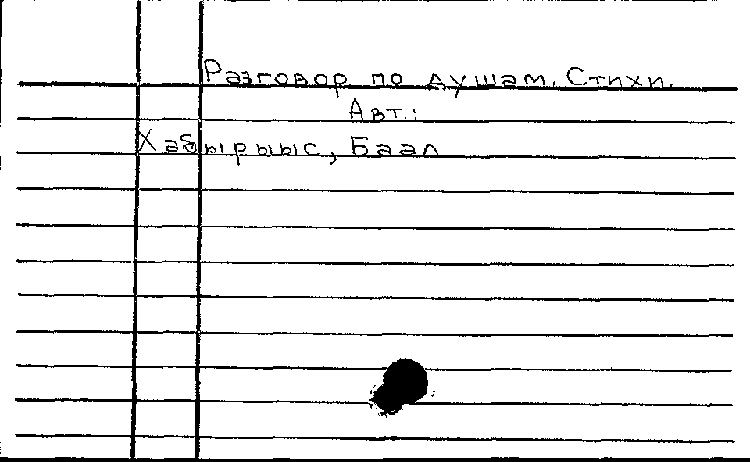 Разговор по душам. Стихи.
Авт.:
Хабырыыс, Баал